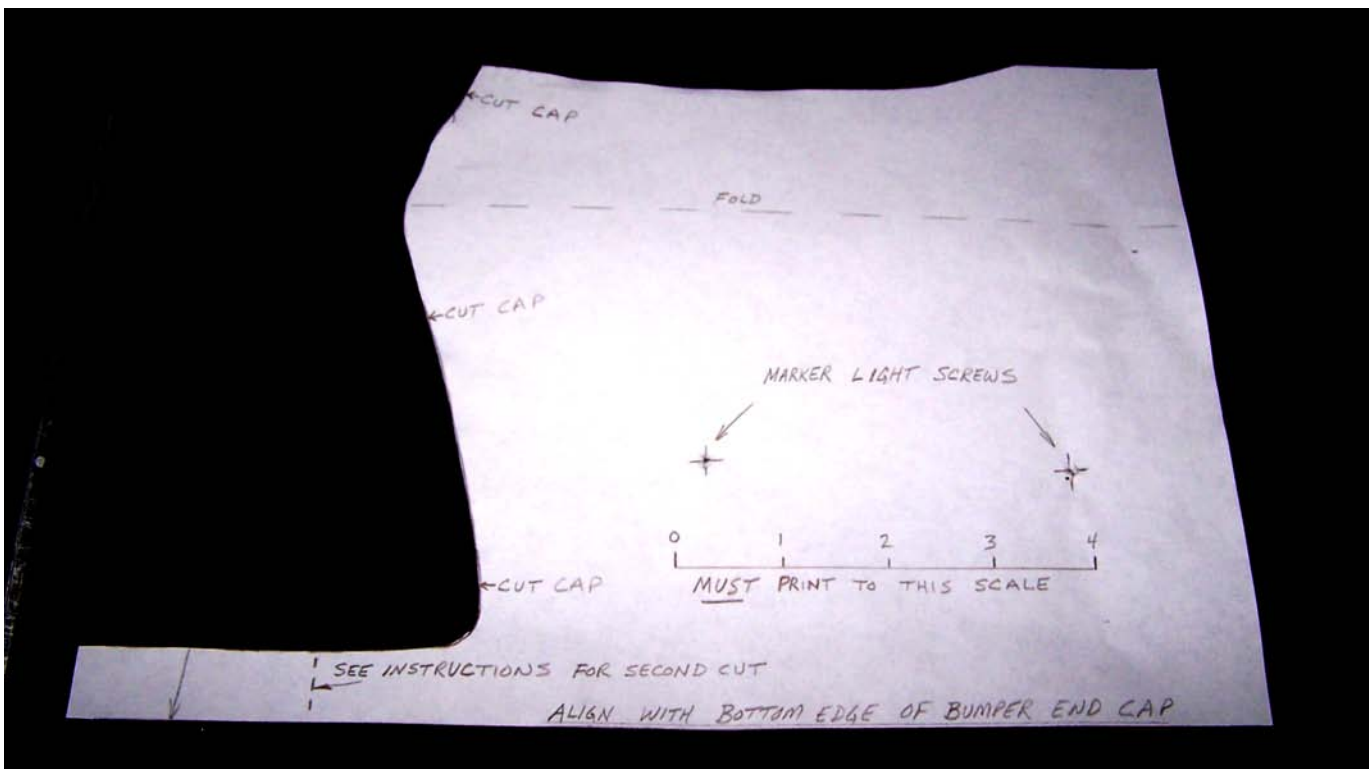 CUT CAP
FOLD
CUT CAP
MARKER LIGHT SCREWS
0 1 2 3 4
CUT CAP
MUST PRINT TO THIS SCALE
SEE INSTRUCTIONS FOR SECOND CUT
ALIGN WITH BOTTOM EDGE OF BUMPER END CAP